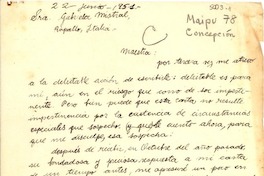 22 - junio - 1951 -
Sra. Gabriela Mistral,
Rapallo, Italia -
Maipú 78
Concepción
Maestra:
por tercera vez me atrevo
a la delectable acción de escribirle: delectable es para
mí, aún en el riesgo que corro de ser imperti-
nente. Pero tal vez en este caso no resulte
impertinencia por la existencia de circunstancias
especiales que sospecho: (y quiere usted ahora, para
que me disculpe, esa sospecha:
después de recibir, en Octubre del año pasado,
su bondadosa y generosa respuesta a mi carta
de un tiempo antes, me apresuré un poco en